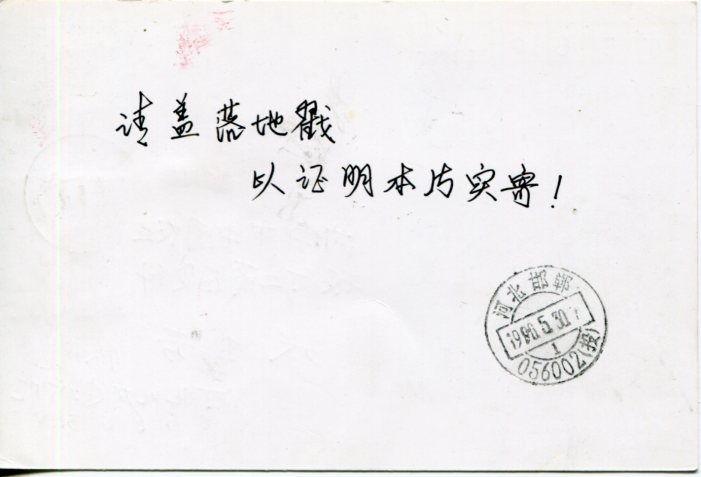 请盖落地戳
以证明本片实寄！
河北邯郸
1996.5.30.
1
056002(投)